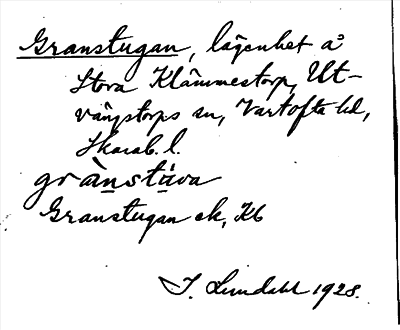 Granstugan, lägenhet å
Stora Klämmestorp, Ut-
vängstorps sn, Vartofta hd,
Skarab. l.
grànstúva
Granstugan ek, Kb
I. Lundahl 1928.